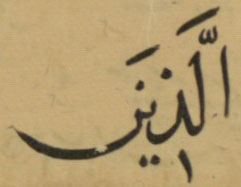 الَّذِيَنَ